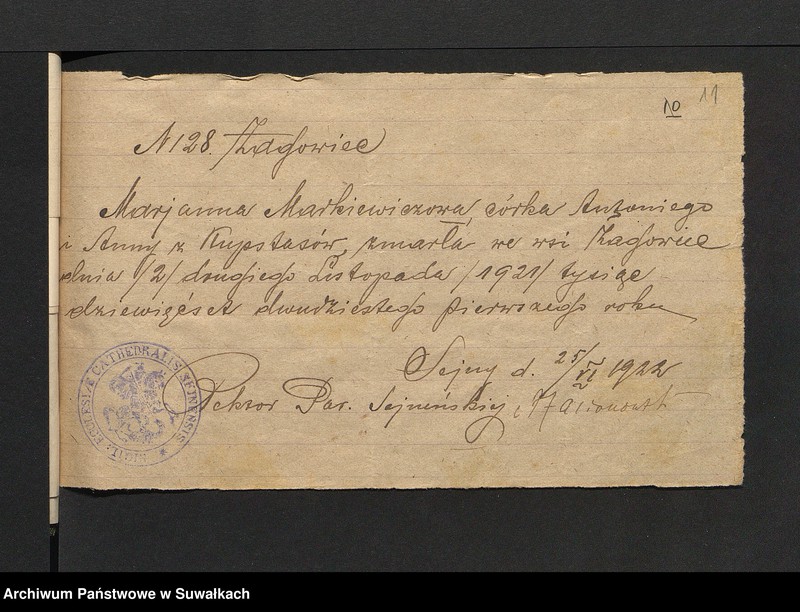 № 11
N 128. Zagowiec
Marjanna Markiewiczowa córka Antoniego
i Anny z Kupstasów, zmarła we wsi Zagowiec
dnia /2/ drugiego Listopada /1921/ tysiąc
dziewięćset dwudziestego pierwszego roku
Sejny d. 25/VI 1922
Rektor Par. Sejneńskiej
SIGIL: ECCLESIÆ CATHEDRALIS SEJNENSIS
Archiwum Państwowe w Suwałkach